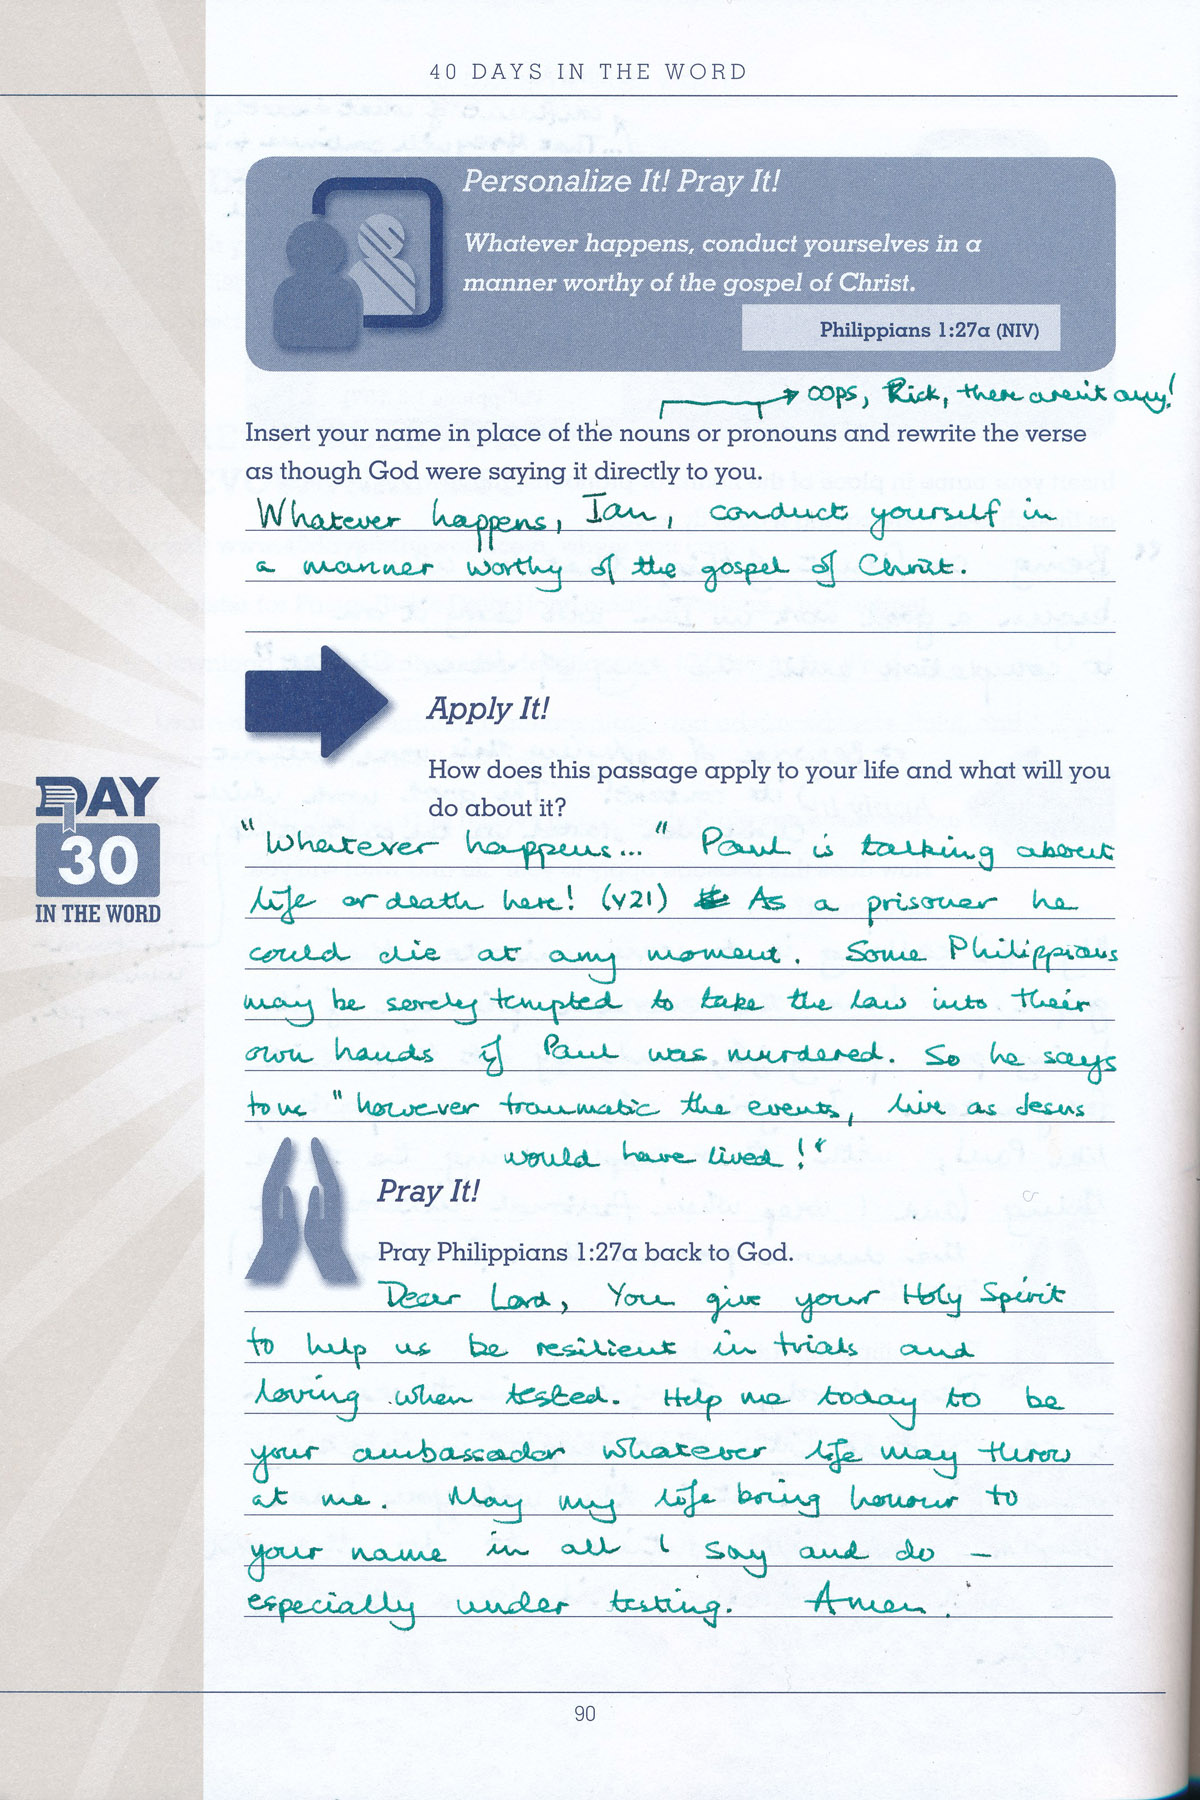 40 DAYS IN THE WORD
Personalize It! Pray It!
Whatever happens, conduct yourselves in a
manner worthy of the gospel of Christ.
Philippians 1:27a (NIV)
oops, Rick, there aren't any!
Insert your name in place of the nouns or pronouns and rewrite the verse
as though God were saying it directly to you.
Whatever happens, Ian, conduct yourself in
a manner worthy of the gospel of Christ.
Apply It!
How does this passage apply to your life and what will you
do about it?
"Whatever happens..." Paul is talking about
life or death here! (v21) As a prisoner he
could die at any moment. Some Philippians
may be sorely tempted to take the law into their
own hands if Paul was murdered. So he says
to us "however traumatic the events, live as Jesus
would have lived!"
DAY
30
IN THE WORD
Pray It!
Pray Philippians 1:27a back to God.
Dear Lord, You give your Holy Spirit
to help us be resilient in trials and
loving when tested. Help me today to be
your ambassador whatever life may throw
at me. May my life bring honour to
your name in all I say and do –
especially under testing. Amen.
90